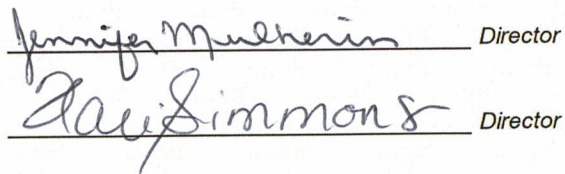 Jennifer Mulherin Director
Simmons Director